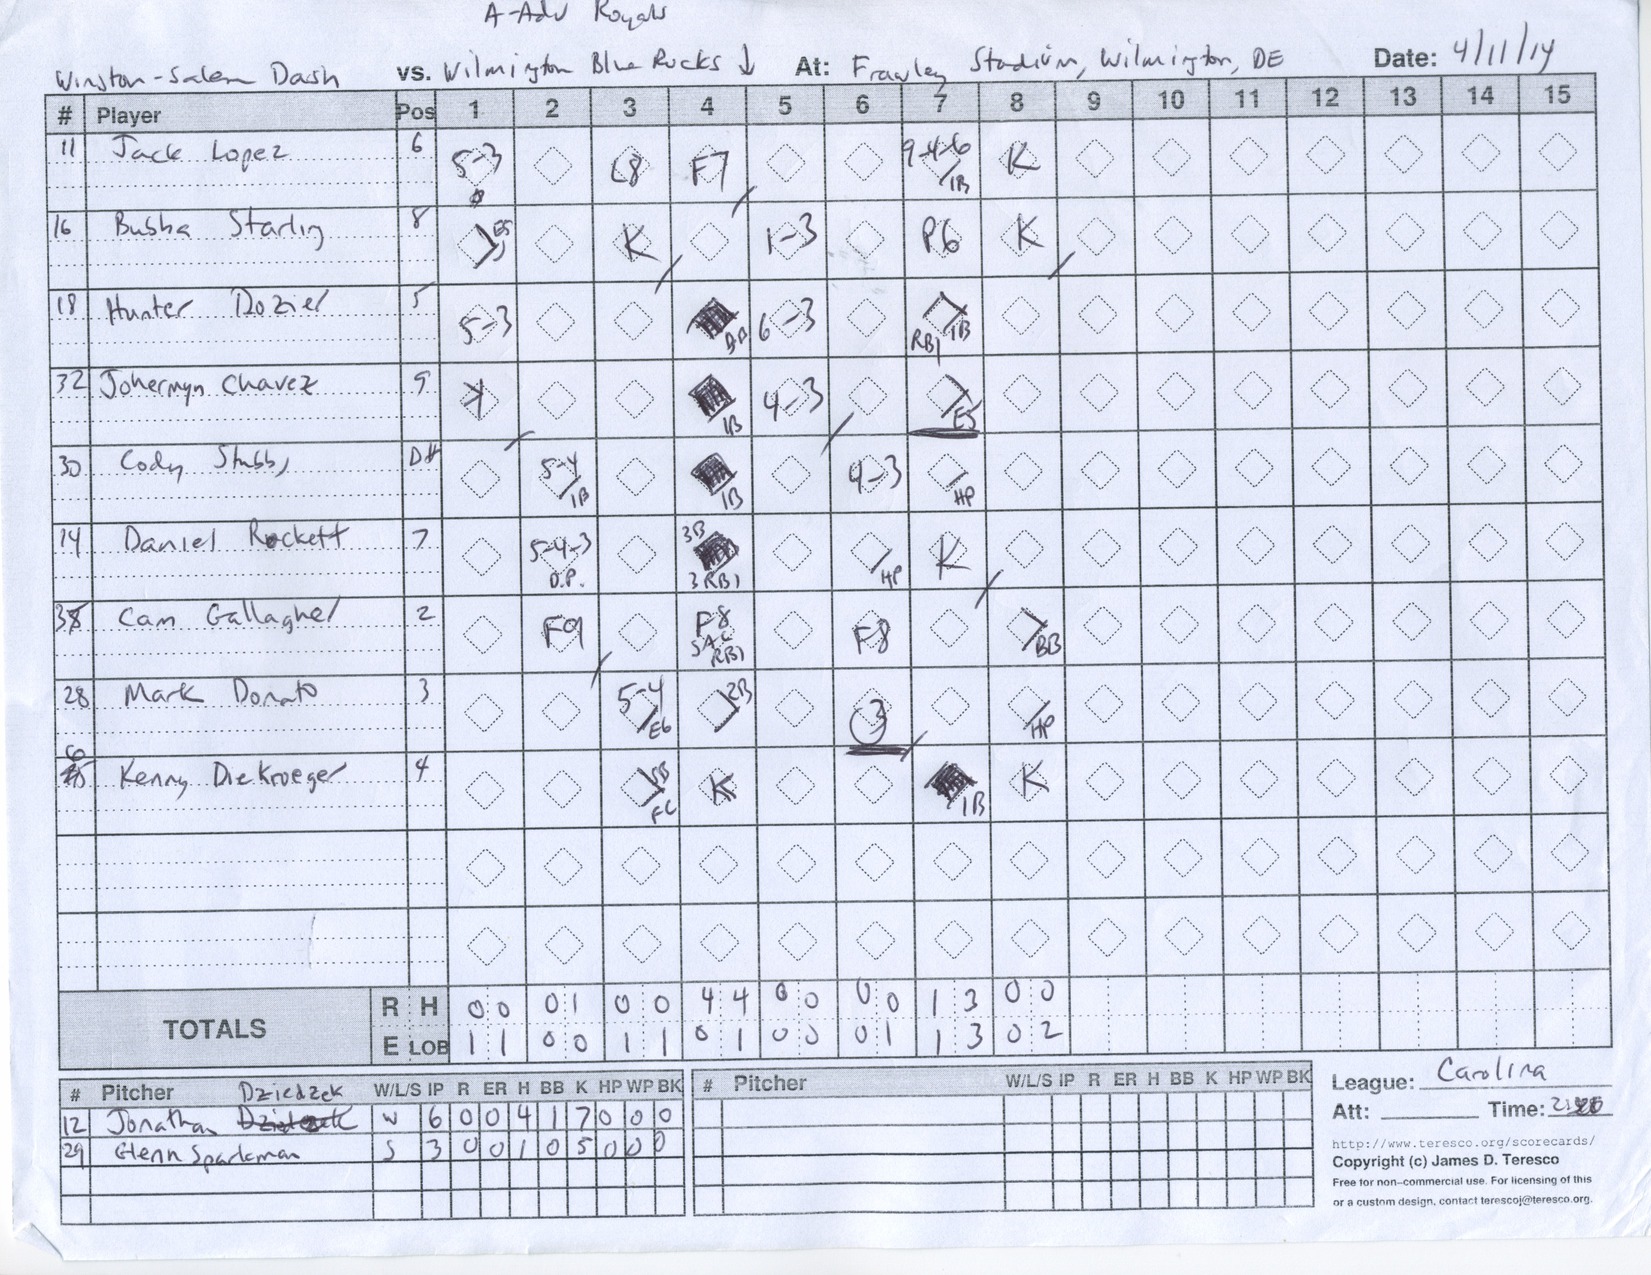 A-Adv Royals
Winston-Salem Dash vs. Wilmington Blue Rocks ↓ At: Frawley Stadium, Wilmington, DE Date: 4/11/14
# Player Pos 1 2 3 4 5 6 7 8 9 10 11 12 13 14 15
11 Jack Lopez 6 5-3 L8 F7 9-4-6 1B K
16 Bubba Starling 8 E5 K 1-3 P6 K
18 Hunter Dozier 5 5-3 BB 6-3 RBI 1B
32 Johermyn Chavez 9 K 1B 4-3 E5
30 Cody Stubbs DH 5-4 1B 1B 4-3 HP
14 Daniel Rockett 7 5-4-3 D.P. 3B 3 RBI HP K
38 Cam Gallagher 2 F9 F8 SAC RBI F8 BB
28 Mark Donato 3 5-4 E6 2B 3 HP
6 Kenny Diekroeger 4 BB FC K 1B K
TOTALS R H 0 0 0 1 0 0 4 4 0 0 0 0 1 3 0 0
E LOB 1 1 0 0 1 1 0 1 0 0 0 1 1 3 0 2
# Pitcher Dziedzek W/L/S IP R ER H BB K HP WP BK # Pitcher W/L/S IP R ER H BB K HP WP BK
12 Jonathan W 6 0 0 4 1 7 0 0 0
29 Glenn Sparkman S 3 0 0 1 0 5 0 0 0
League: Carolina
Att: Time:
http://www.teresco.org/scorecards/
Copyright (c) James D. Teresco
Free for non-commercial use. For licensing of this
or a custom design, contact terescoj@teresco.org.